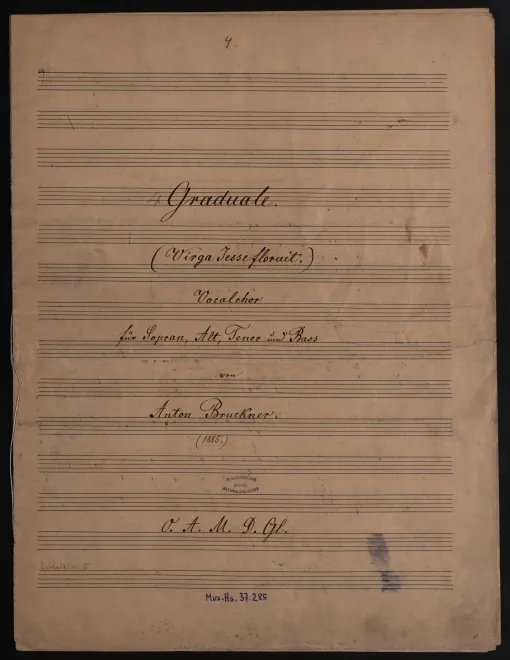 4.
4 Graduale.
(Virga Jesse floruit.)
Vocalchor
für Sopran, Alt, Tenor und Bass
von
Anton Bruckner.
(1885.)
O. A. M. D. Gl.
Mus.Hs.37.285